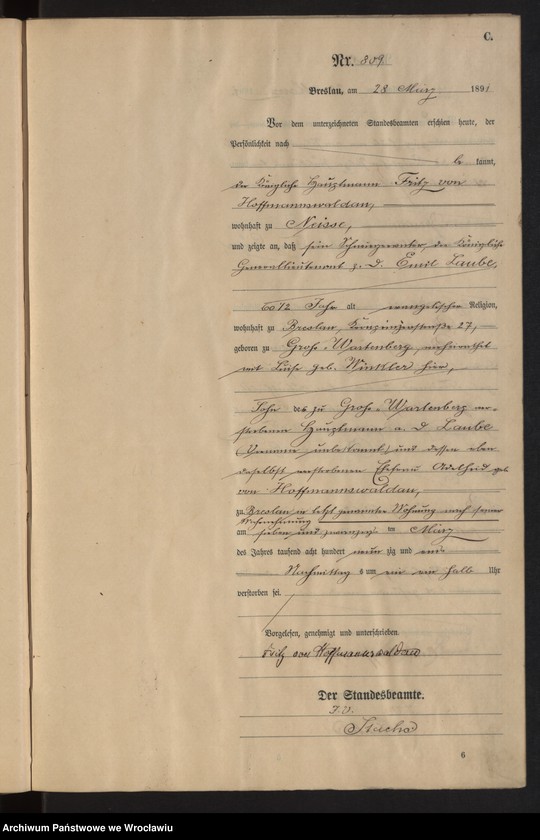 C.
Nr. 809.
Breslau, am 28 März 1891
Vor dem unterzeichneten Standesbeamten erschien heute, der
Persönlichkeit nach
be kannt,
der Königliche Hauptmann Fritz von
Hoffmannswaldau,
wohnhaft zu Neisse,
und zeigte an, daß sein Schwiegervater, der Königliche
Generallieutenant z. D. Emil Laube,
Jahr alt evangelischer Religion,
wohnhaft zu Breslau, 27,
geboren zu Groß-Wartenberg, verheirathet
mit Luise geb. Winkler hier,
Sohn des zu Groß-Wartenberg ver-
storbenen Hauptmann a. D Laube
(Vorname unbekannt) und dessen eben
daselbst verstorbenen Ehefrau Adelheid geb
von Hoffmannswaldau,
zu Breslau in letzt genannter Wohnung nach seiner
Wahrnehmung
am sieben und zwanzig ten März
des Jahres tausend acht hundert neun zig und eins
Nachmittag s um ein ein halb Uhr
verstorben sei.
Vorgelesen, genehmigt und unterschrieben.
Fritz von Hoffmannswaldau
Der Standesbeamte.
I.V.
6
Archiwum Państwowe we Wrocławiu